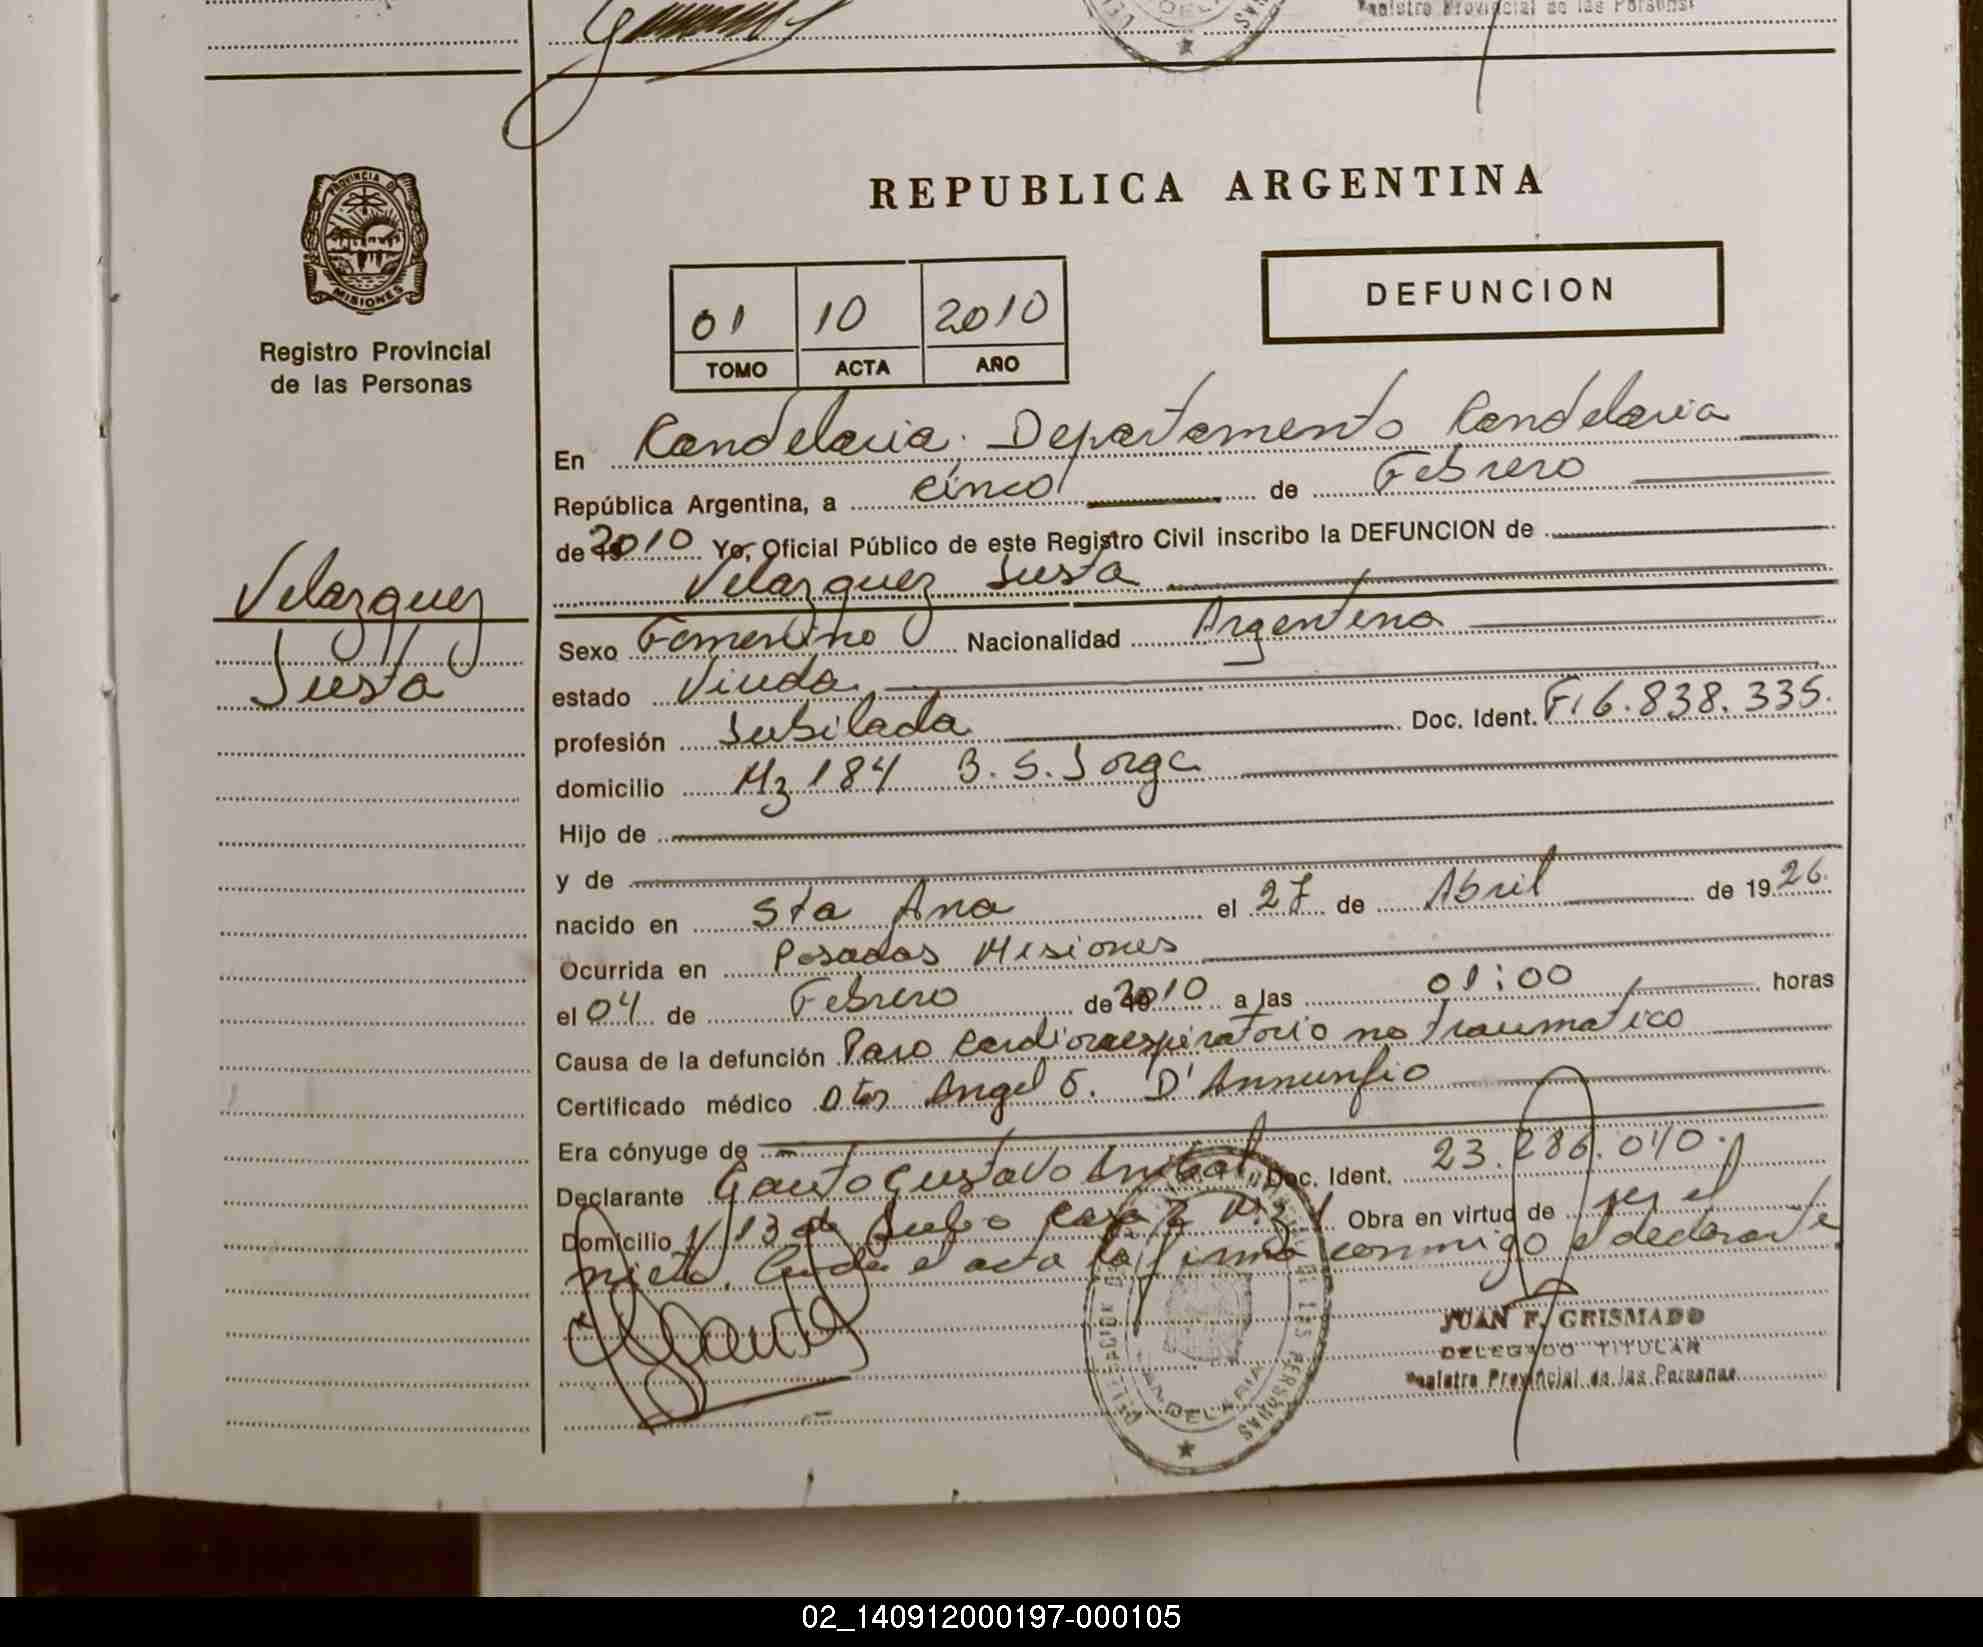 Registro Provincial de las Personas
PROVINCIA DE
MISIONES
Registro Provincial
de las Personas
REPUBLICA ARGENTINA
01 10 2010
TOMO ACTA AÑO
DEFUNCION
En Candelaria, Departamento Candelaria
República Argentina, a cinco de Febrero
de 2010 Yo, Oficial Público de este Registro Civil inscribo la DEFUNCION de
Velazquez Justa
Velazquez
Justa
Sexo Femenino Nacionalidad Argentina
estado Viuda
profesión Jubilada Doc. Ident. F. 6.838.335.
domicilio Mz 184 B. S. Jorge
Hijo de
y de
nacido en Sta Ana el 27 de Abril de 1926.
Ocurrida en Posadas Misiones
el 04 de Febrero de 2010 a las 01:00 horas
Causa de la defunción Paro Cardiorrespiratorio no traumatico
Certificado médico Dtor Angel D'Annunzio
Era cónyuge de
Declarante Gauto Gustavo Anibal Doc. Ident. 23.286.040.
Domicilio 13 de Julio casa Obra en virtud de ser el
nieto. Leida el acta la firma conmigo el declarante
JUAN F. GRISMADO
DELEGADO TITULAR
Registro Provincial de las Personas
CANDELARIA
02_140912000197-000105